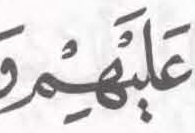 عَلَيْهِمْ و